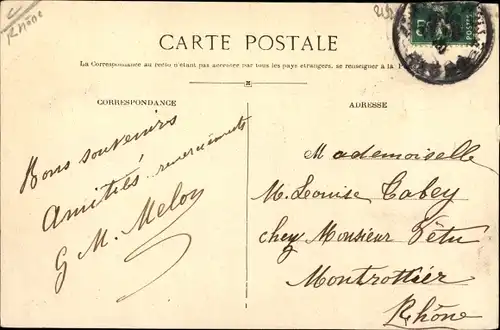 Rhône
CARTE POSTALE
La Correspondance au recto n'étant pas acceptée par tous les pays étrangers, se renseigner à la
CORRESPONDANCE
ADRESSE
Bons souvenirs
Amitiés, remerciements
G M. Meloy
Mademoiselle
M. Louise Cabey
chez Monsieur Pétu
Montrottier
Rhône